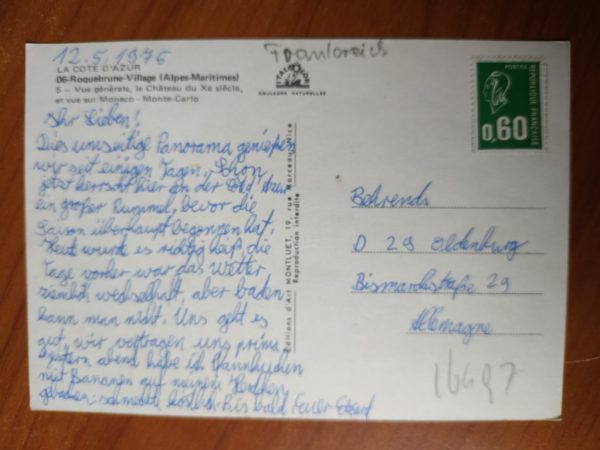 12.5.1976
Frankreich
LA COTE D'AZUR
06-Roquebrune-Village (Alpes-Maritimes)
5 - Vue générale, le Château du Xe siècle,
et vue sur Monaco - Monte-Carlo
COULEURS NATURELLES
POSTES
REPUBLIQUE FRANÇAISE
0,60
Ihr Lieben!
Dies umseitige Panorama genießen
wir seit einigen Tagen. Schon
jetzt herrscht hier an der Côte d'Azur
ein großer Rummel, bevor die
Saison überhaupt begonnen hat.
Heut wurde es richtig heiß, die
Tage vorher war das Wetter
ziemlich wechselhaft, aber baden
kann man nicht. Uns geht es
gut, wir vertragen uns prima.
Gestern abend habe ich Pfannkuchen
mit Bananen auf meinem Kocher
gebacken: schmeckte köstlich. Bis bald Euer
Editions d'Art MONTLUET, 19, rue Marceau, Nice
Reproduction interdite
Behrends
D 29 Oldenburg
Bismarckstraße 29
Allemagne
16497